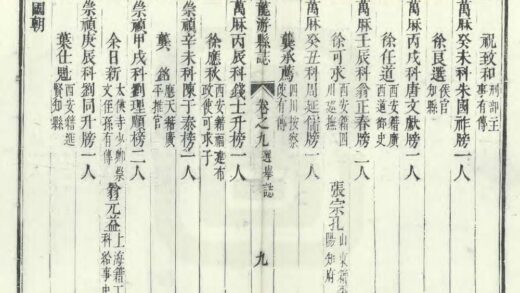 祝致和 刑部主事有傳
萬厤癸未科朱國祚榜一人
徐良選 侯官知縣
萬厤丙戌科唐文獻榜一人
徐任道 西安籍廣西道御史
萬厤壬辰科翁正春榜二人
徐可求 西安籍四川巡撫 張宗孔 山東籍
萬厤癸丑科周延儒榜一人
龔承薦 四川按察使有傳
龍游縣誌 卷之九 選舉誌 九
萬厤丙辰科錢士升榜一人
徐應秋 西安籍福建布政使可求子
崇禎辛未科陳于泰榜一人
龔銘 應天籍廣平推官
崇禎甲戌科劉理順榜二人
余日新 太僕寺少卿祭文任孫有傳 翁元益 上海籍工科給事
崇禎庚辰科劉同升榜一人
葉仕魁 西安籍進賢知縣
國朝